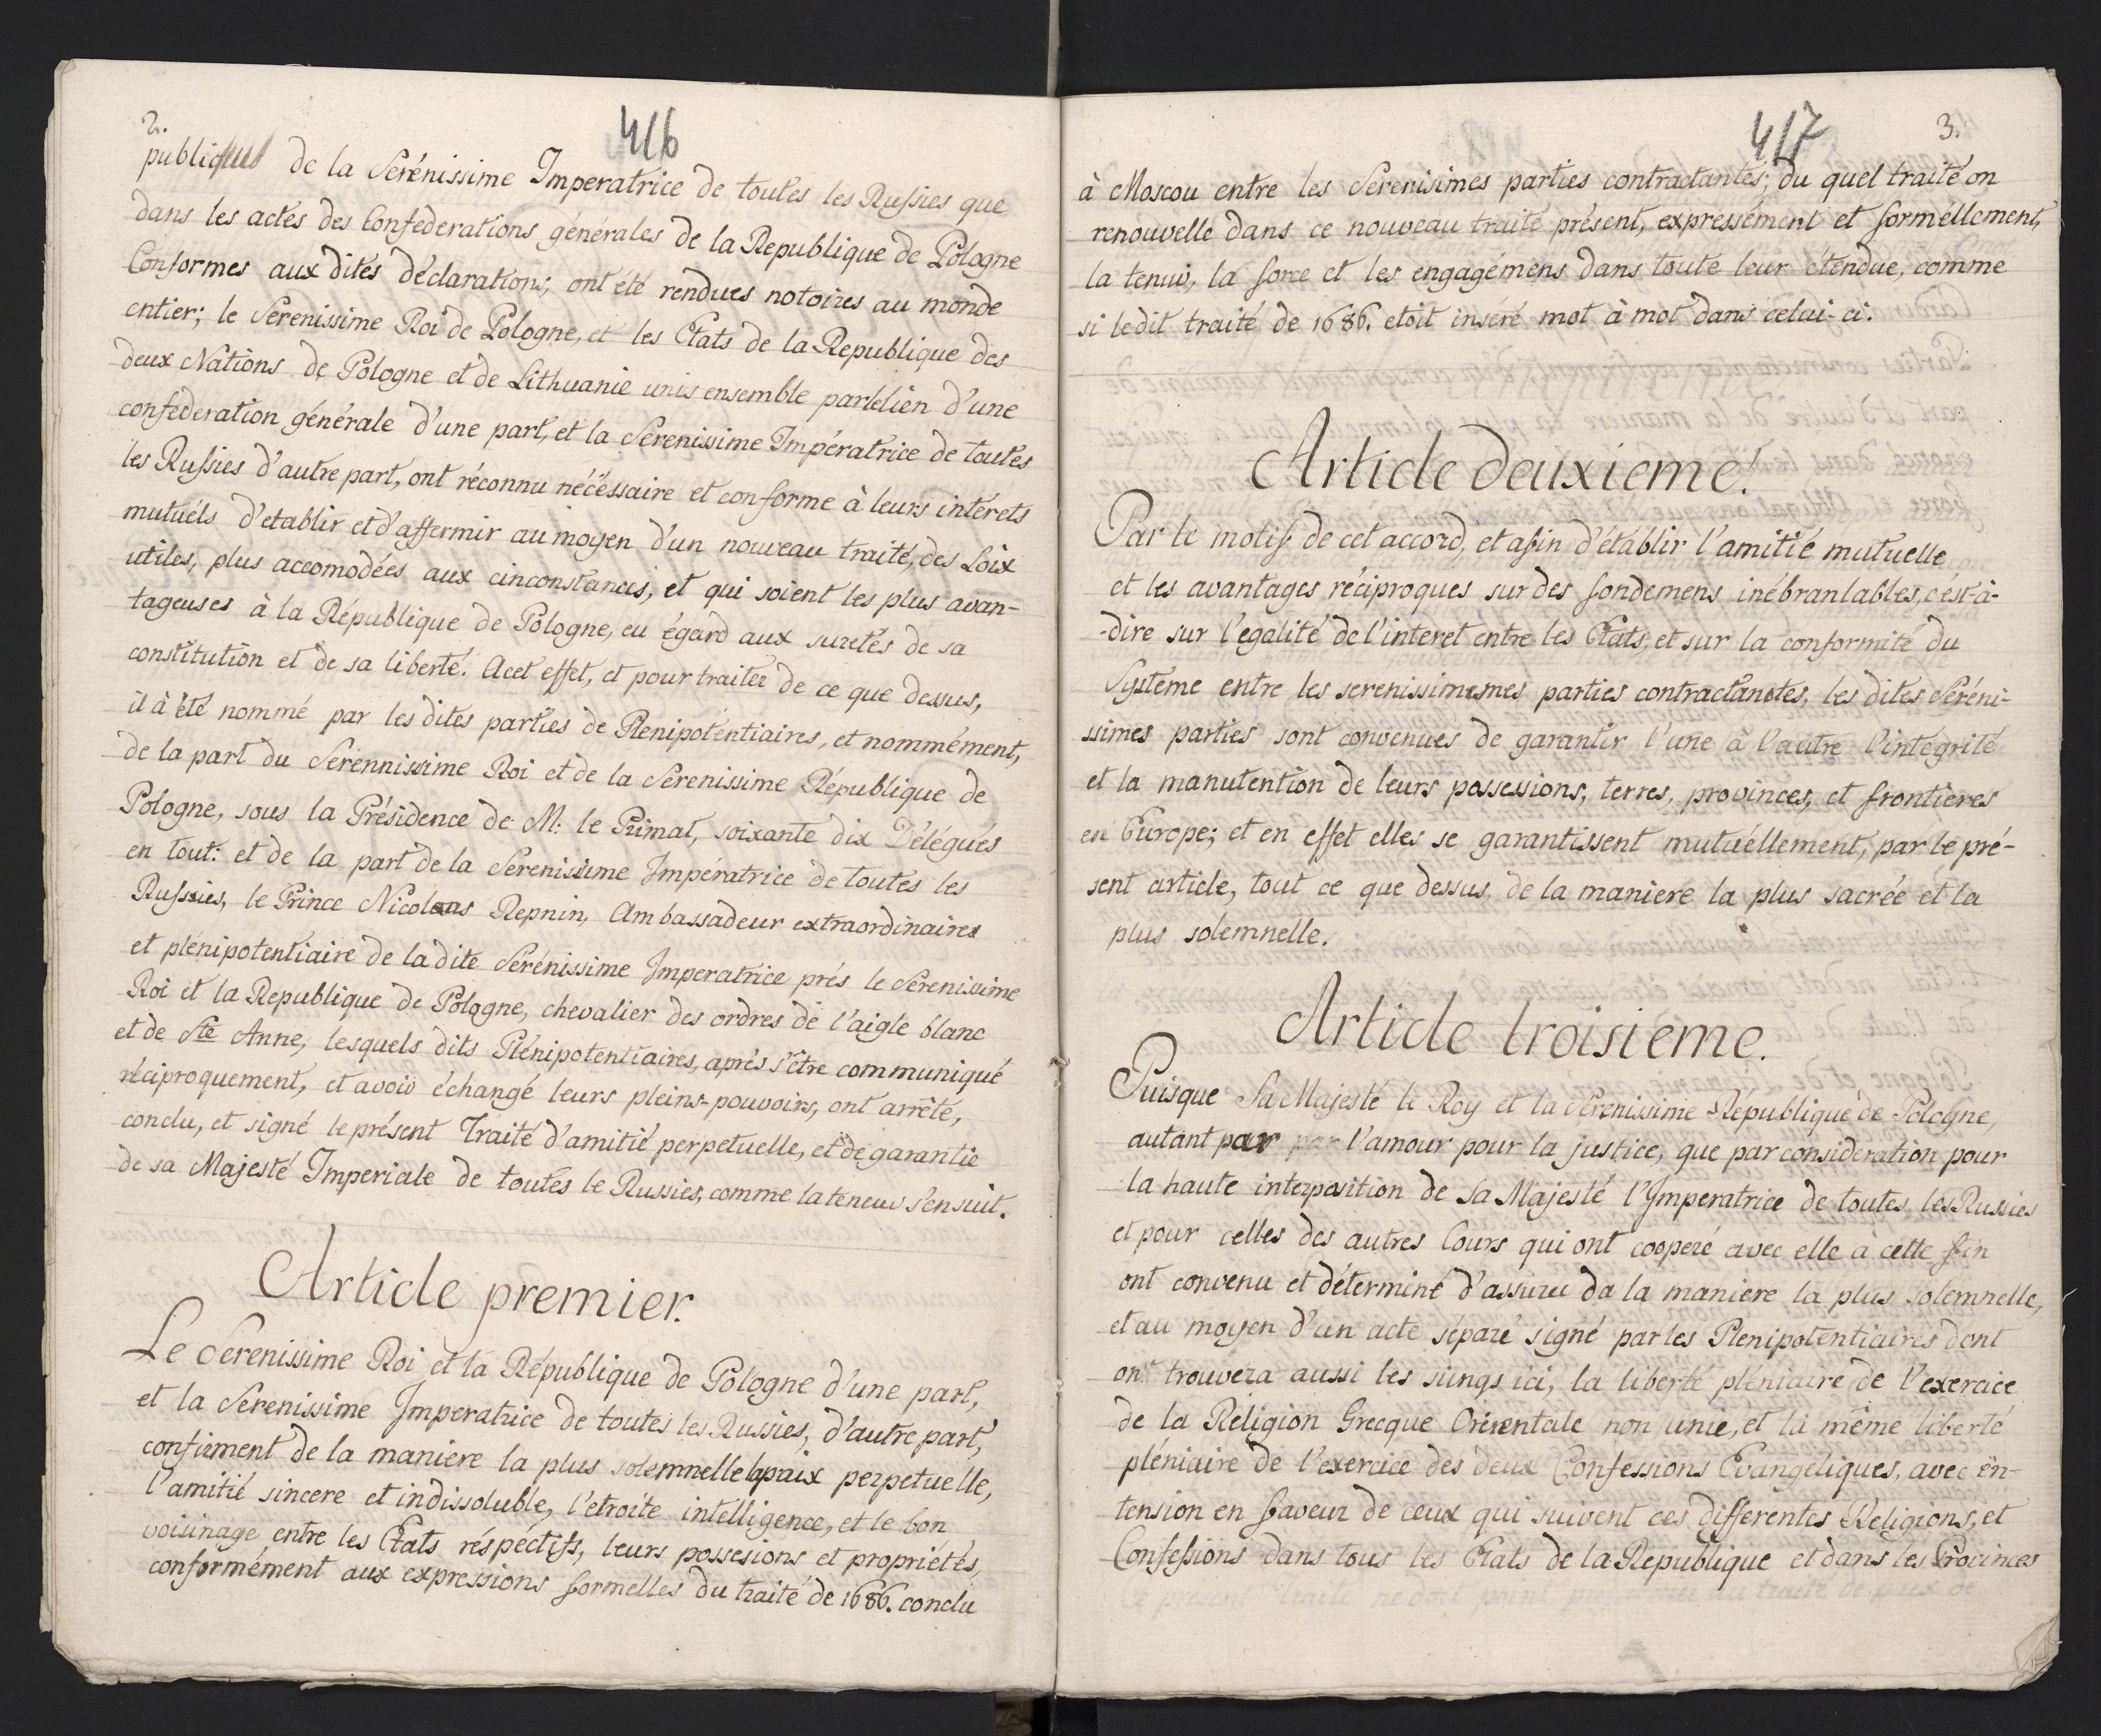 2.
416
publiques de la Serénissime Imperatrice de toutes les Russies que
dans les actes des Confederations générales de la Republique de Pologne
Conformes aux dites déclarations; ont été rendues notoires au monde
entier; le Serenissime Roi de Pologne, et les Etats de la Republique des
deux Nations de Pologne et de Lithuanie unis ensemble par le lien d'une
confederation générale d'une part, et la Serenissime Impératrice de toutes
les Russies d'autre part, ont réconnu nécéssaire et conforme à leurs intérets
mutuéls d'etablir et d'affermir au moyen d'un nouveau traité, des Loix
utiles, plus accomodées aux cinconstances, et qui soient les plus avan-
tageuses à la République de Pologne, eu égard aux suretés de sa
constitution et de sa liberté. Acet effet, et pour traiter de ce que dessus,
il à été nommé par les dites parties de Plenipotentiaires, et nommément,
de la part du Serennissime Roi et de la Serenissime République de
Pologne, sous la Présidence de M: le Primat, soixante dix Délégués
en tout: et de la part de la Serenissime Impératrice de toutes les
Russies, le Prince Nicolaus Repnin, Ambassadeur extraordinaires
et plénipotentiaire de la dite Serénissime Imperatrice prés le Serenissime
Roi et la Republique de Pologne, chevalier des ordres de l'aigle blanc
et de Ste Anne, lesquels dits Plénipotentiaires, aprés s'être communiqué
réciproquement, et avoir échangé leurs pleins-pouvoirs, ont arrêté,
conclu, et signé le présent Traité d'amitié perpetuelle, et de garantie
de sa Majesté Imperiale de toutes le Russies, comme la teneur s'ensuit.
Article premier.
Le Serenissime Roi et la République de Pologne d'une part,
et la Serenissime Imperatrice de toutes les Russies, d'autre part,
confirment de la maniere la plus solemnelle la paix perpetuelle,
l'amitié sincere et indissoluble, l'etroite intélligence, et le bon
voisinage entre les Etats réspéctifs, leurs possesions et propriétés,
conformément aux expressions formelles du traité de 1686. conclu
417
3.
à Moscou entre les Serenisimes parties contractantes; du quel traité on
renouvelle dans ce nouveau traité présent, expressément et forméllement,
la teneur, la force et les engagémens dans toute leur étendue, comme
si ledit traité de 1686. etoit inséré mot à mot dans celui-ci.
Article deuxieme.
Par le motif de cet accord, et afin d'établir l'amitié mutuelle
et les avantages réciproques sur des fondemens inébranlables, c'est-à-
-dire sur l'egalité de l'interet entre les Etats, et sur la conformité du
Systeme entre les serenissimesmes parties contractanetes, les dites Séréni-
ssimes parties sont convenues de garantir l'une à l'autre l'intégrité
et la manutention de leurs possessions, terres, provinces, et frontieres
en Europe; et en effet elles se garantissent mutuéllement, par le pré-
sent article, tout ce que dessus, de la maniere la plus sacrée et la
plus solemnelle.
Article troisieme.
Puisque Sa Majesté le Roy et la Serenissime République de Pologne,
autant par par l'amour pour la justice, que par consideration pour
la haute interposition de Sa Majesté l'Imperatrice de toutes les Russies
et pour celles des autres Cours qui ont cooperé avec elle à cette fin
ont convenu et déterminé d'assurer da la maniere la plus solemnelle,
et au moyen d'un acte séparé signé par les Plenipotentiaires dont
on trouvera aussi les siings ici, la liberté pléniaire de l'exercice
de la Religion Grecque Orientale non unie, et la même liberté
pléniaire de l'exercice des deux Confessions Evangéliques, avec en-
tension en faveur de ceux qui suivent ces differentes Religions, et
Confessions dans tous les Etats de la Republique et dans les Provinces